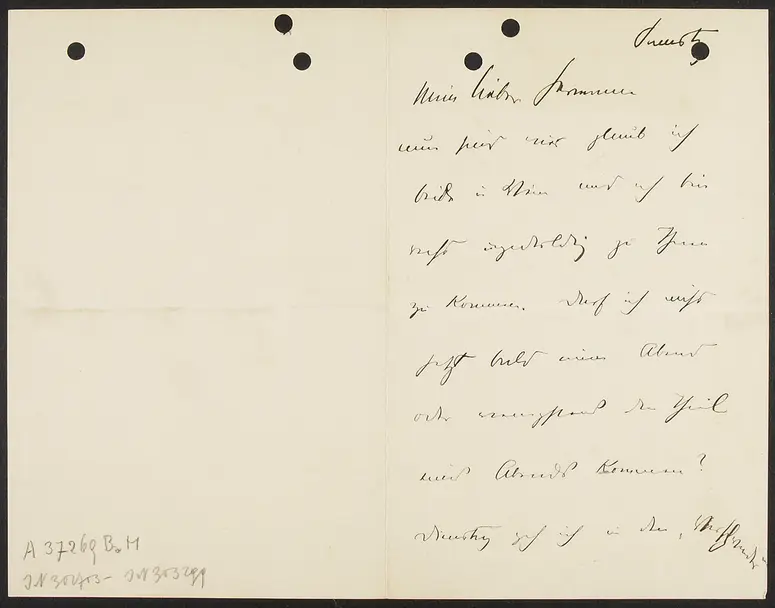 Dienstg
Mein lieber Hermann
nun sind wir glaub ich
beide in Wien und ich bin
recht ungeduldig zu Ihnen
zu Kommen. Darf ich nicht
jetzt bald einen Abend
oder wenigstens den Theil
eines Abends Kommen?
Dienstag geh ich in den
A 37269 BaM
IN 302703- IN 303299